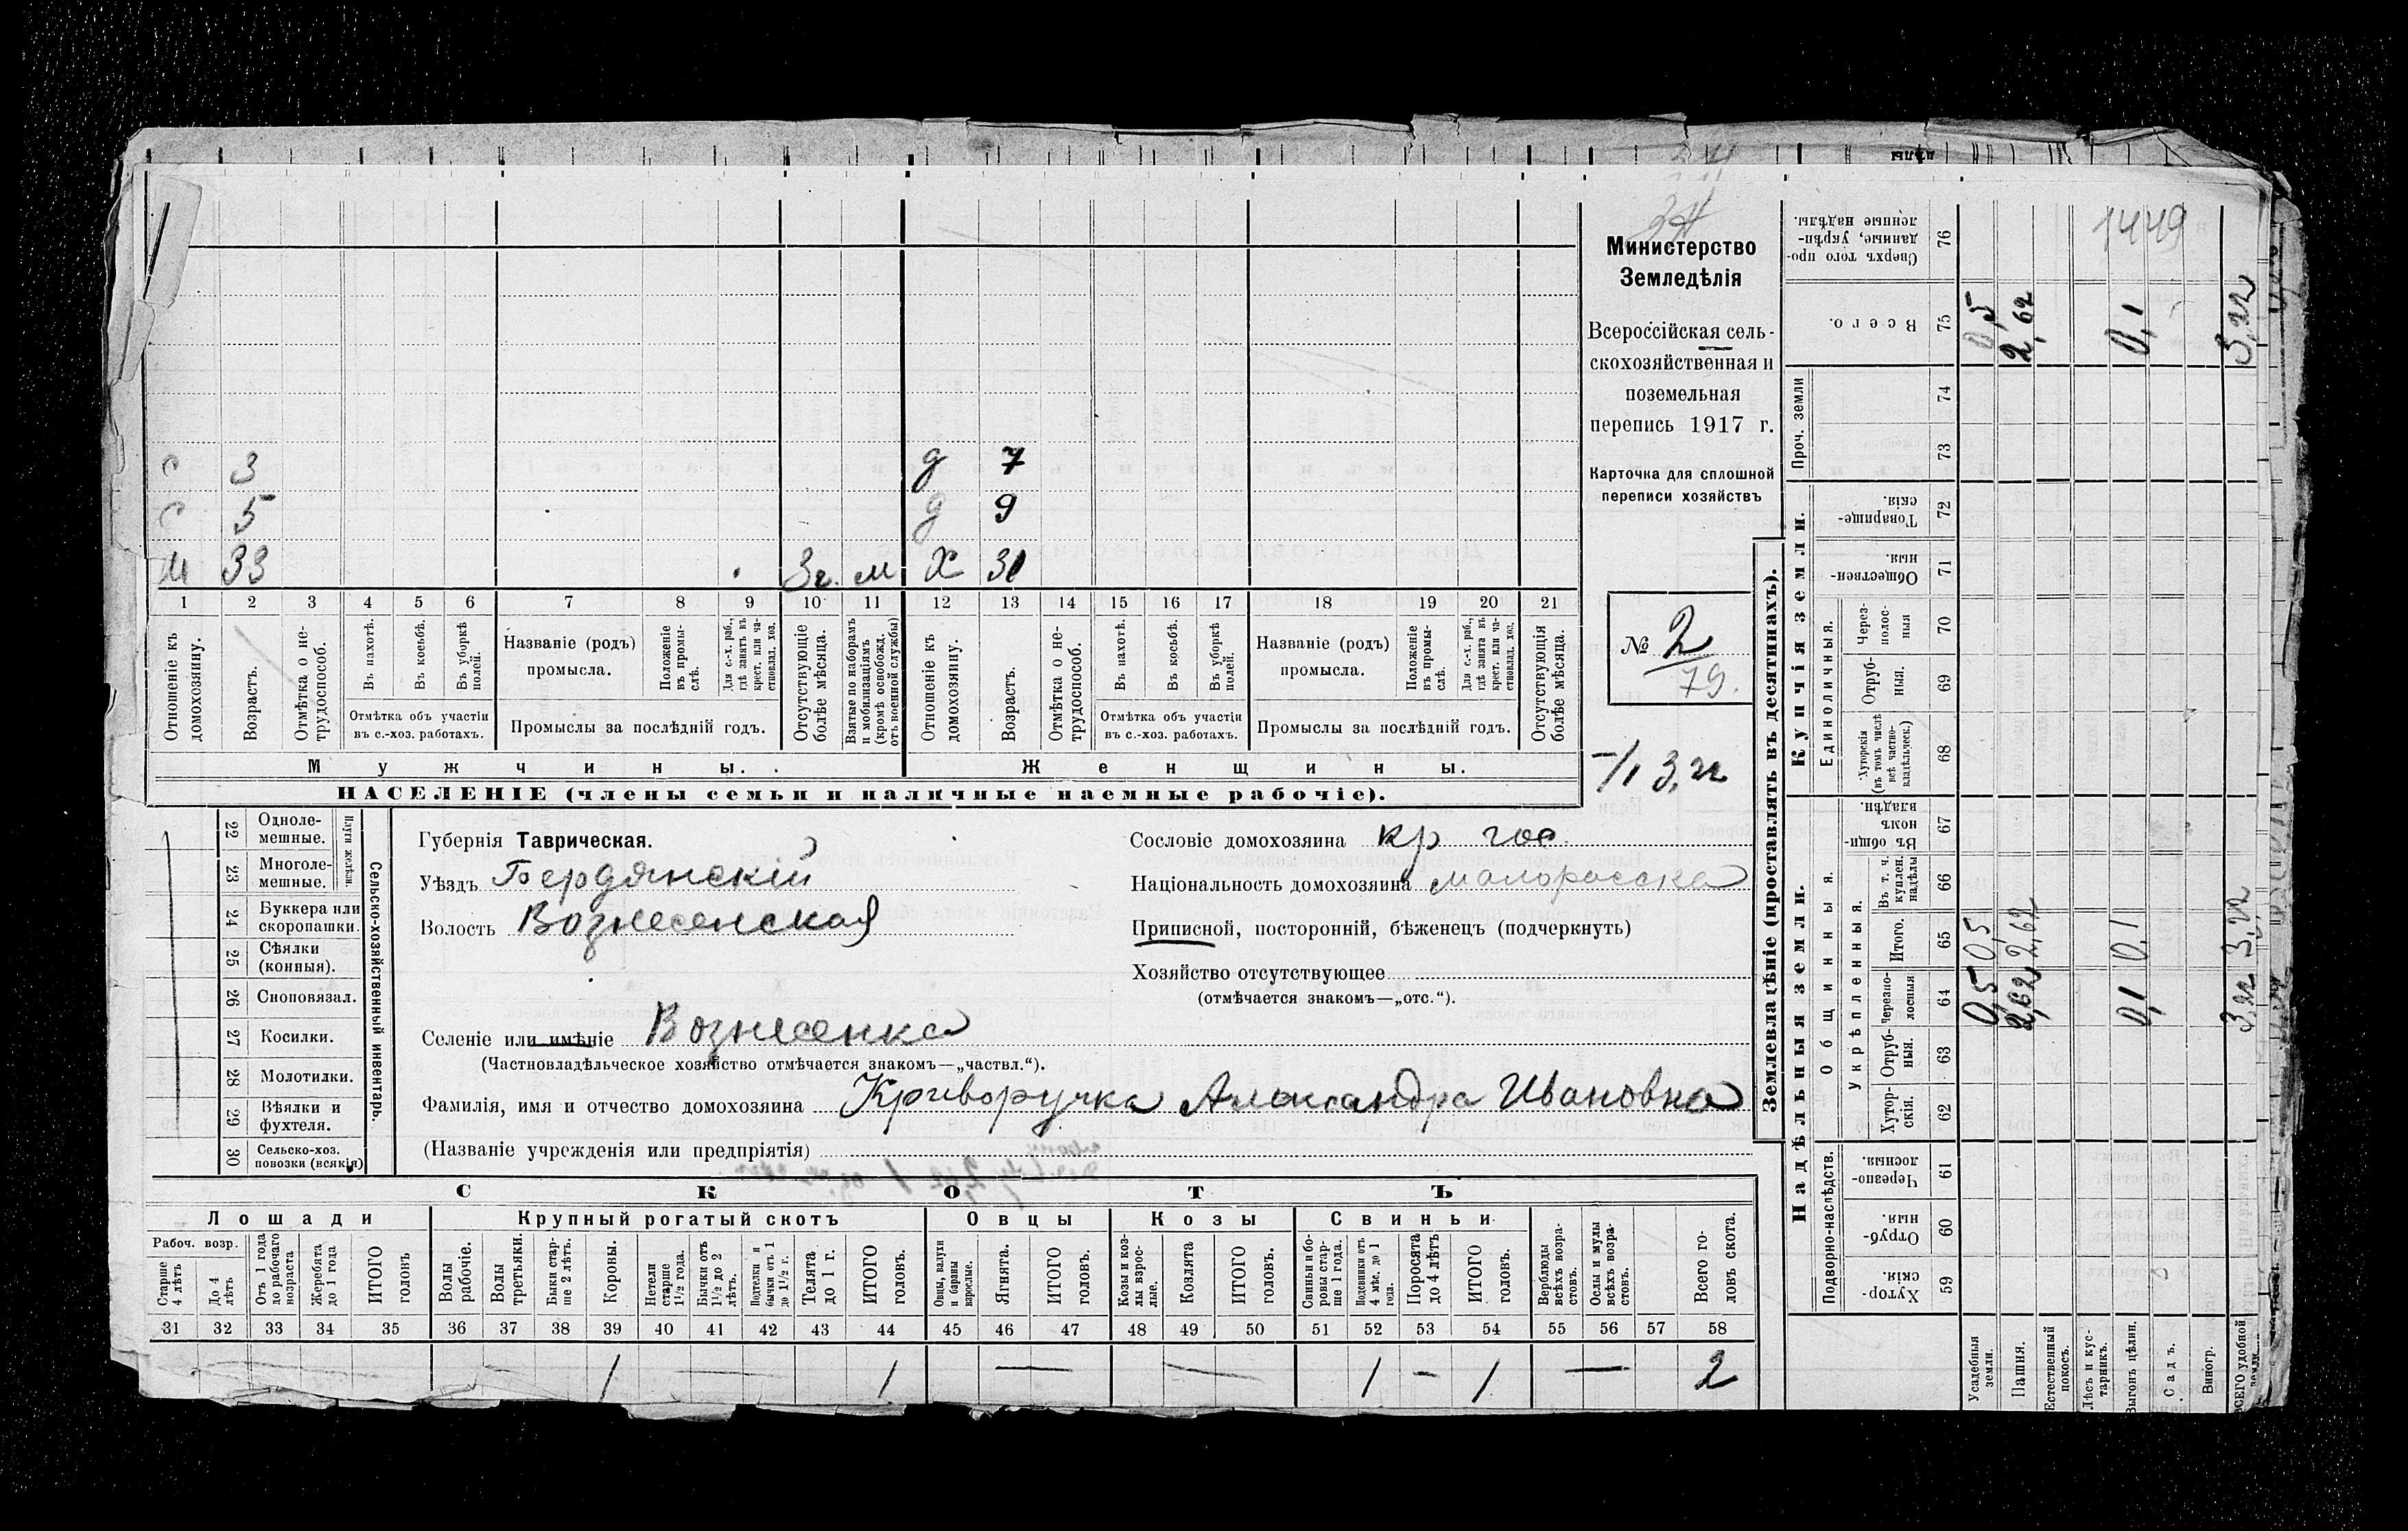 с 3 д 7
с 5 д 9
м 33 3 г. м Х 31
1 2 3 4 5 6 7 8 9 10 11 12 13 14 15 16 17 18 19 20 21
Отношеніе къ домохозяину.
Возрастъ.
Отмѣтка о не-трудоспособ.
Въ пахотѣ.
Въ косьбѣ.
Въ уборкѣ полей.
Отмѣтка объ участіи въ с.-хоз. работахъ.
Названіе (родъ) промысла.
Положеніе въ промы-слѣ.
Для с.-х. раб., гдѣ занятъ въ крест. или ча-стновлад. хоз.
Промыслы за послѣдній годъ.
Отсутствующіе болѣе мѣсяца.
Взятые по наборамъ и мобилизаціямъ (кромѣ освобожд. отъ военной службы)
Отношеніе къ домохозяину.
Возрастъ.
Отмѣтка о не-трудоспособ.
Въ пахотѣ.
Въ косьбѣ.
Въ уборкѣ полей.
Отмѣтка объ участіи въ с.-хоз. работахъ.
Названіе (родъ) промысла.
Положеніе въ промы-слѣ.
Для с.-х. раб., гдѣ занята въ крест. или ча-стновлад. хоз.
Промыслы за послѣдній годъ.
Отсутствующія болѣе мѣсяца.
Мужчины. Женщины.
НАСЕЛЕНІЕ (члены семьи и наличные наемные рабочіе).
Министерство
Земледѣлія
Всероссійская сель-
скохозяйственная и
поземельная
перепись 1917 г.
Карточка для сплошной
переписи хозяйствъ
№ 2
79.
3,22
22 Одноле-мешные.
23 Многоле-мешные.
Плуги желѣзн.
24 Буккера или скоропашки.
25 Сѣялки (конныя).
26 Сноповязал.
27 Косилки.
28 Молотилки.
29 Вѣялки и фухтеля.
30 Сельско-хоз. повозки (всякія)
Сельско-хозяйственный инвентарь.
Губернія Таврическая.
Уѣздъ Бердянскій
Волость Вознесенская
Селеніе или имѣніе Вознесенка
(Частновладѣльческое хозяйство отмѣчается знакомъ—„частвл.“).
Фамилія, имя и отчество домохозяина Криворучка Александра Ивановна
(Названіе учрежденія или предпріятія)
Сословіе домохозяина кр гос.
Національность домохозяина малоросска
Приписной, посторонній, бѣженецъ (подчеркнуть)
Хозяйство отсутствующее
(отмѣчается знакомъ—„отс.“).
СКОТЪ
Лошади Крупный рогатый скотъ Овцы Козы Свиньи
Рабоч. возр.
Старше 4 лѣтъ
До 4 лѣтъ
Отъ 1 года до рабочаго возраста
Жеребята до 1 года
ИТОГО головъ
Волы рабочіе.
Волы третьяки.
Быки стар-ше 2 лѣтъ.
Коровы.
Нетели старше 1½ года.
Бычки отъ 1½ до 2 лѣтъ.
Подтелки и бычки отъ 1 до 1½ г.
Телята до 1 г.
ИТОГО головъ.
Овцы, валухи и бараны взрослые.
Ягнята.
ИТОГО головъ.
Козы и коз-лы взрос-лые.
Козлята
ИТОГО головъ.
Свиньи и бо-ровы стар-ше 1 года.
Подсвинки отъ 4 мѣс. до 1 года.
Поросята до 4 лѣтъ
ИТОГО головъ.
Верблюды всѣхъ возра-стовъ.
Ослы и мулы всѣхъ возра-стовъ.
Всего го-ловъ скота.
31 32 33 34 35 36 37 38 39 40 41 42 43 44 45 46 47 48 49 50 51 52 53 54 55 56 57 58
— 1 — 1 — — 1 – 1 — 2
Землевладѣніе (проставлять въ десятинахъ).
Надѣльныя земли.
Купчія земли.
Проч. земли
Подворно-наслѣдств.
Общинныя.
Укрѣпленныя.
Единоличныя.
Хутор-скія. 59
Отруб-ныя. 60
Черезпо-лосныя. 61
Хутор-скія. 62
Отруб-ныя. 63
Черезпо-лосныя 64
Итого. 65
Въ т. ч. куплен. надѣлы 66
Въ общи-номъ владѣн. 67
Хуторскія (въ томъ числѣ всѣ частно-владѣльческ.) 68
Отруб-ныя. 69
Через-полос-ныя 70
Обществен-ныя. 71
Товарище-скія. 72
73
74
Всего. 75
Сверхъ того про-данные, укрѣп-ленные надѣлы. 76
Усадебныя земли. 0,5 0,5 0,5
Пашня. 2,62 2,62 2,62
Естественный покосъ.
Лѣсъ и кус-тарникъ.
Выгонъ цѣлин. 0,1 0,1 0,1
Садъ.
Виногр.
ВСЕГО удобной земли 3,22 3,22 3,22
1449